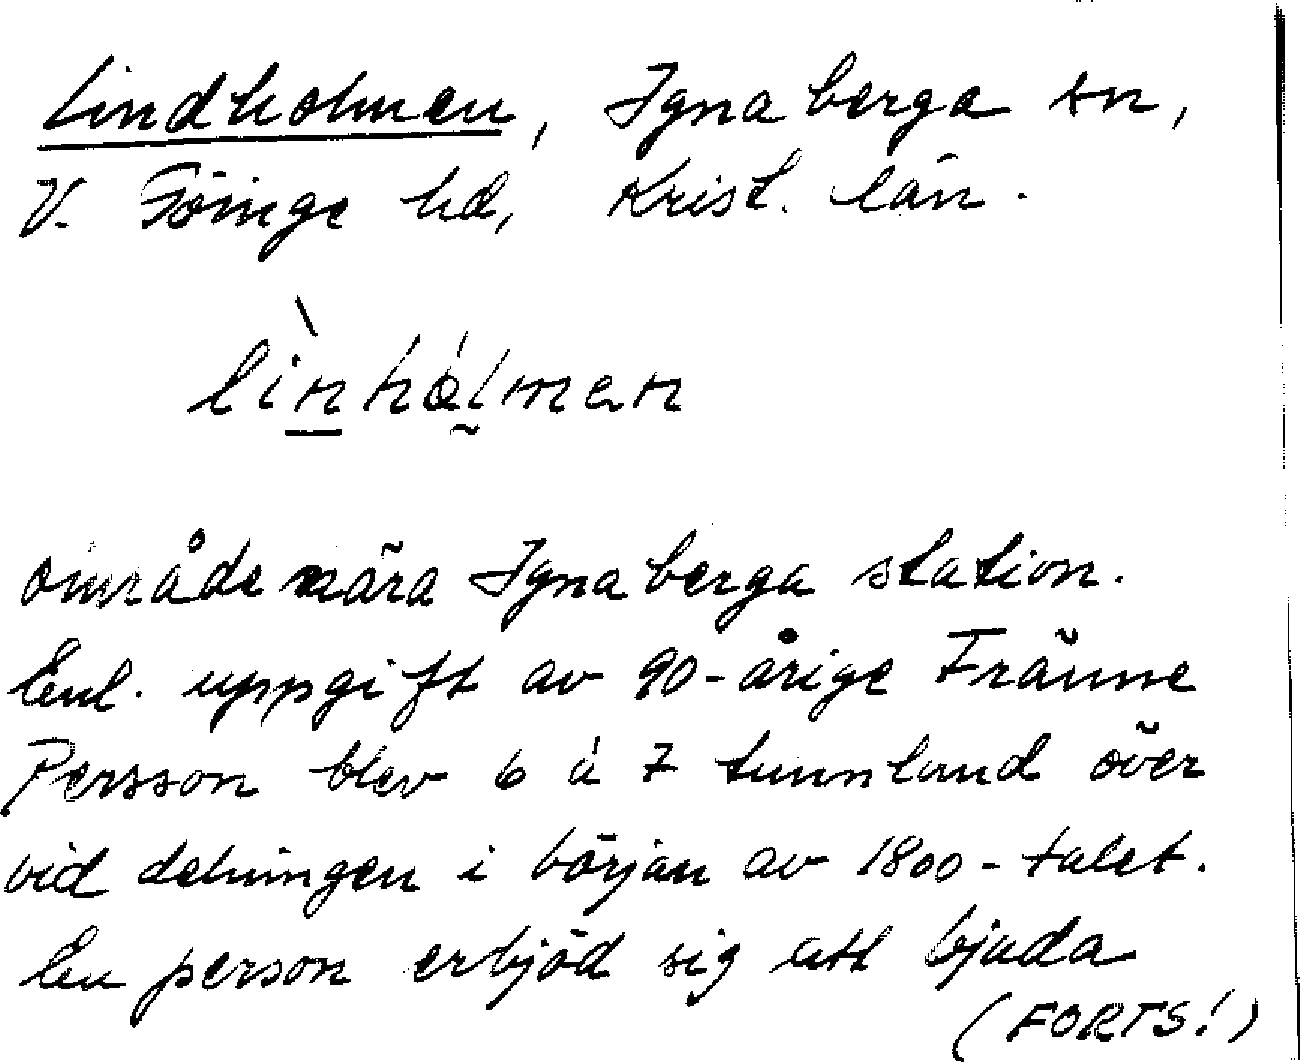 Lindholmen, Ignaberga sn,
V. Göinge hd, Krist. län.
lìnhólmen
område nära Ignaberga station.
Enl. uppgift av 90-årige Fränne
Persson blev 6 à 7 tunnland över
vid delningen i början av 1800-talet.
En person erbjöd sig att bjuda
(FORTS!)